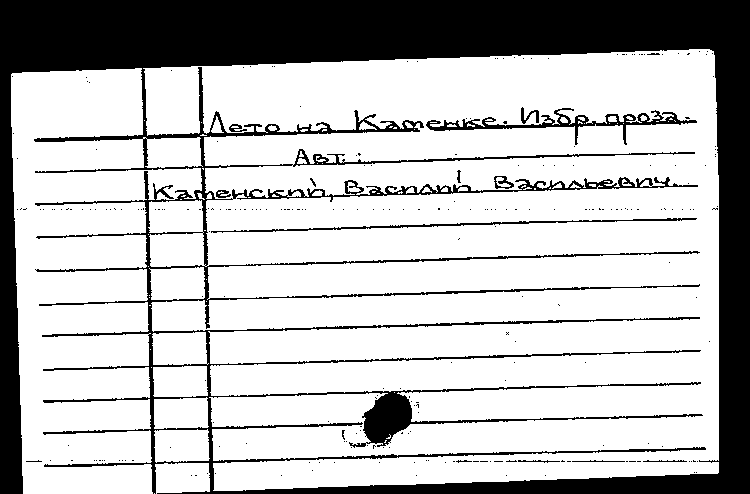 Лето на Каменке. Избр. проза.
Авт.:
Каменский, Василий Васильевич.